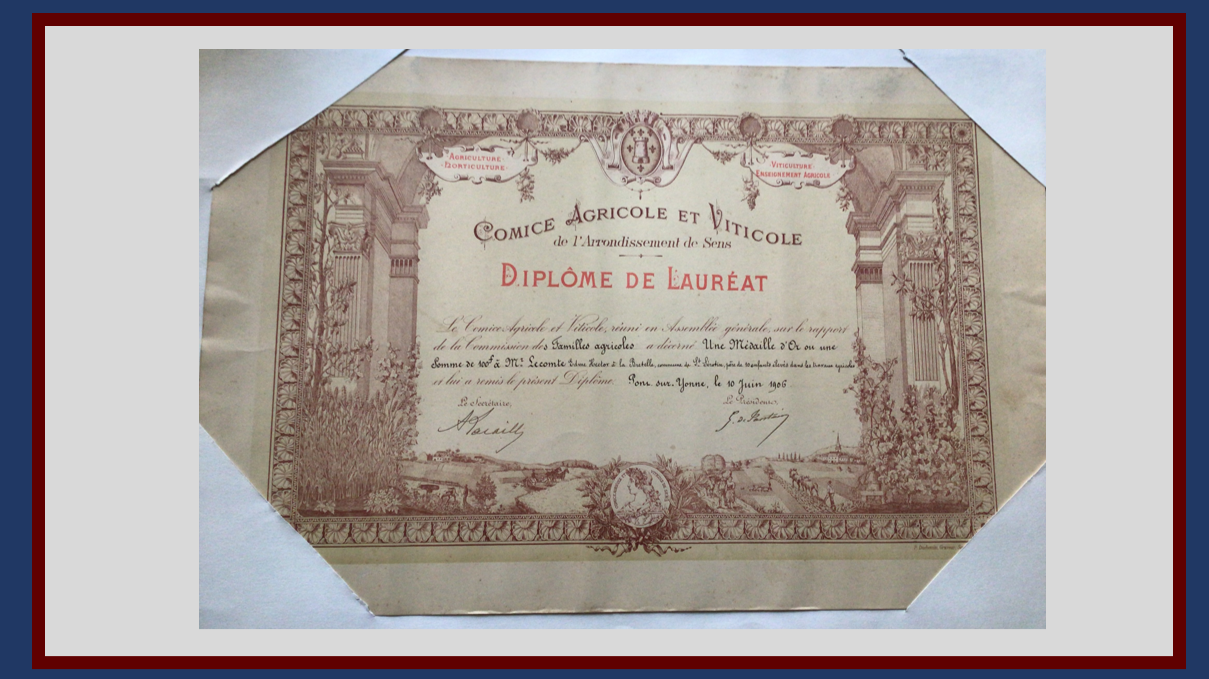 AGRICULTURE
HORTICULTURE
VITICULTURE
ENSEIGNEMENT AGRICOLE
COMICE AGRICOLE ET VITICOLE
de l'Arrondissement de Sens
DIPLÔME DE LAURÉAT
Le Comice Agricole et Viticole, réuni en Assemblée générale, sur le rapport
de la Commission des Familles agricoles a décerné Une Médaille d'Or ou une
Somme de 100f à Mr Lecomte Edme Hector à la commune de St Sérotin, père de 10 enfants élevés dans les travaux agricoles
et lui a remis le présent Diplôme. Pont sur Yonne, le 10 Juin 1906
Le Secrétaire,
Le Président,